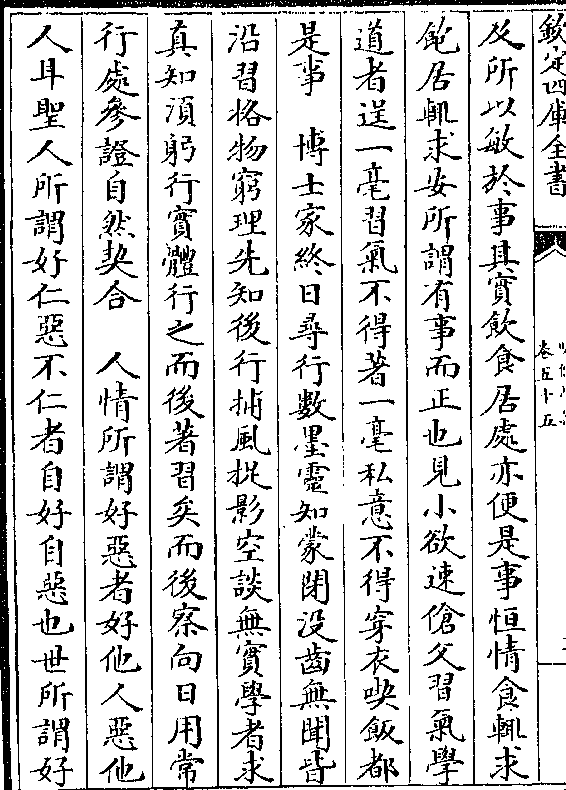 欽定四庫全書
卷五十五
及所以敏於事其實飲食居處亦便是事恒情食輒求
飽居輒求安所謂有事而正也見小欲速傖父習氣學
道者逞一毫習氣不得著一毫私意不得穿衣喫飯都
是事　博士家終日尋行數墨靈知蒙閉没齒無聞皆
沿習格物窮理先知後行捕風捉影空談無實學者求
真知須躬行實體行之而後著習矣而後察向日用常
行處參證自然契合　人情所謂好惡者好他人惡他
人耳聖人所謂好仁惡不仁者自好自惡也世所謂好